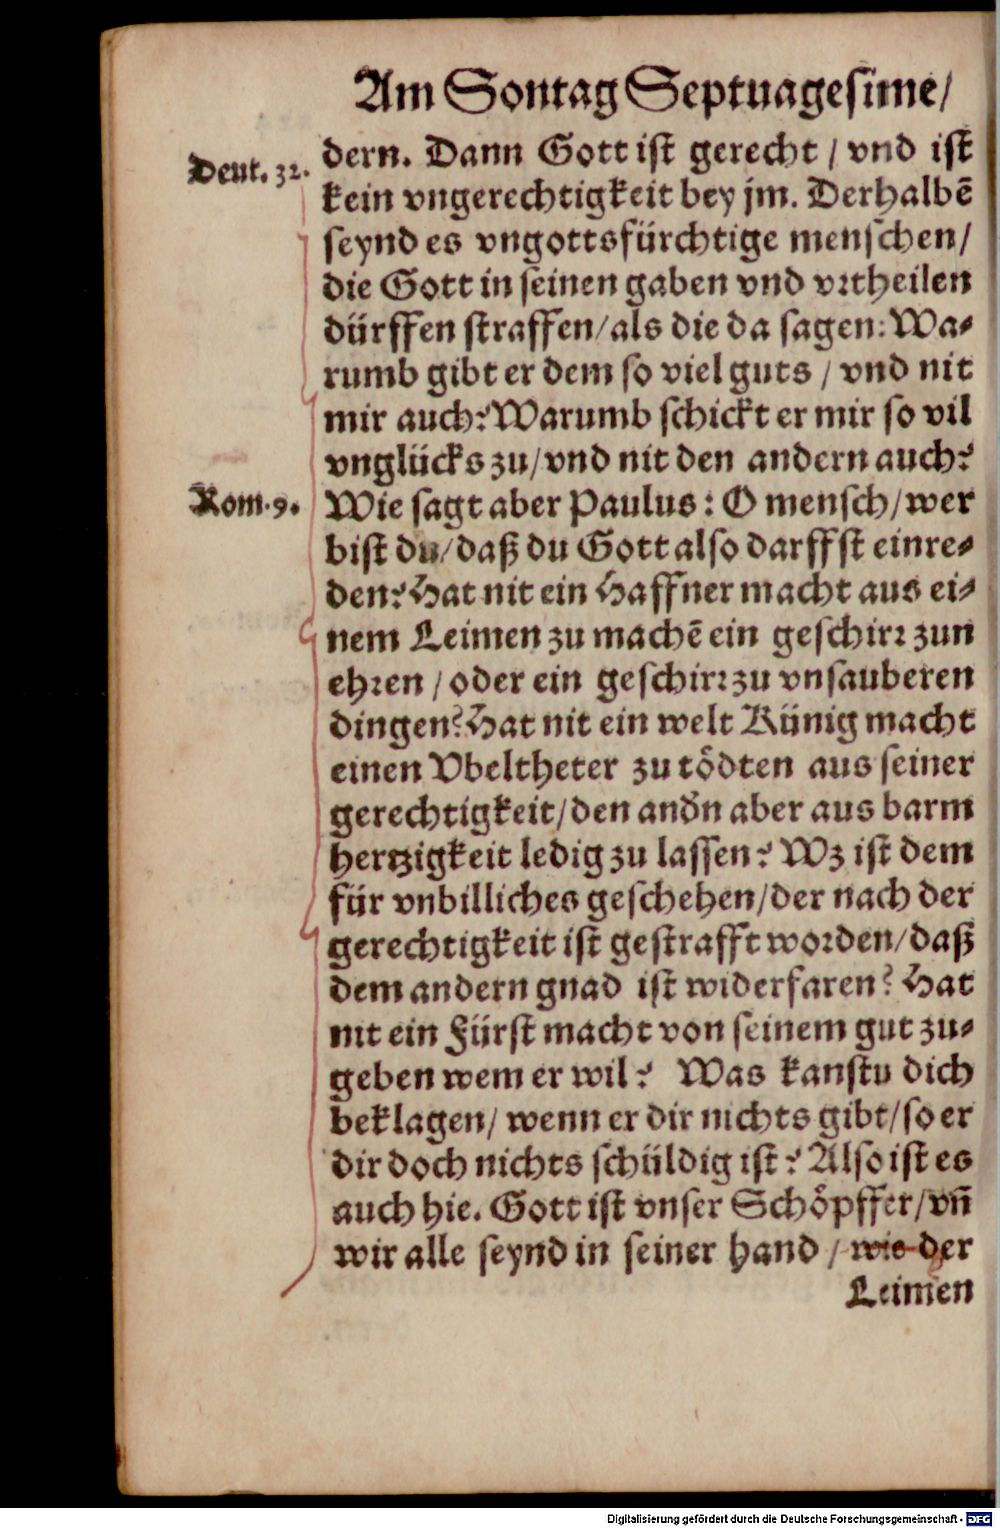 Am Sontag Septuagesime/
Deut. 32. dern. Dann Gott ist gerecht / vnd ist
kein vngerechtigkeit bey jm. Derhalbẽ
seynd es vngottsfürchtige menschen/
die Gott in seinen gaben vnd vrtheilen
dürffen straffen/als die da sagen: Wa-
rumb gibt er dem so viel guts / vnd nit
mir auch? Warumb schickt er mir so vil
vnglücks zu/vnd nit den andern auch?
Rom. 9. Wie sagt aber Paulus: O mensch/wer
bist du/daß du Gott also darffst einre-
den? Hat nit ein Haffner macht aus ei-
nem Leimen zu machẽ ein geschirr zun
ehren / oder ein geschirr zu vnsauberen
dingen? Hat nit ein welt Künig macht
einen Vbeltheter zu tödten aus seiner
gerechtigkeit/den andn̄ aber aus barm
hertzigkeit ledig zu lassen? Wz ist dem
für vnbilliches geschehen/der nach der
gerechtigkeit ist gestrafft worden/daß
dem andern gnad ist widerfaren? Hat
nit ein Fürst macht von seinem gut zu-
geben wem er wil? Was kanstu dich
beklagen/ wenn er dir nichts gibt/so er
dir doch nichts schüldig ist? Also ist es
auch hie. Gott ist vnser Schöpffer/vñ
wir alle seynd in seiner hand / wie der
Leimen
Digitalisierung gefördert durch die Deutsche Forschungsgemeinschaft - DFG